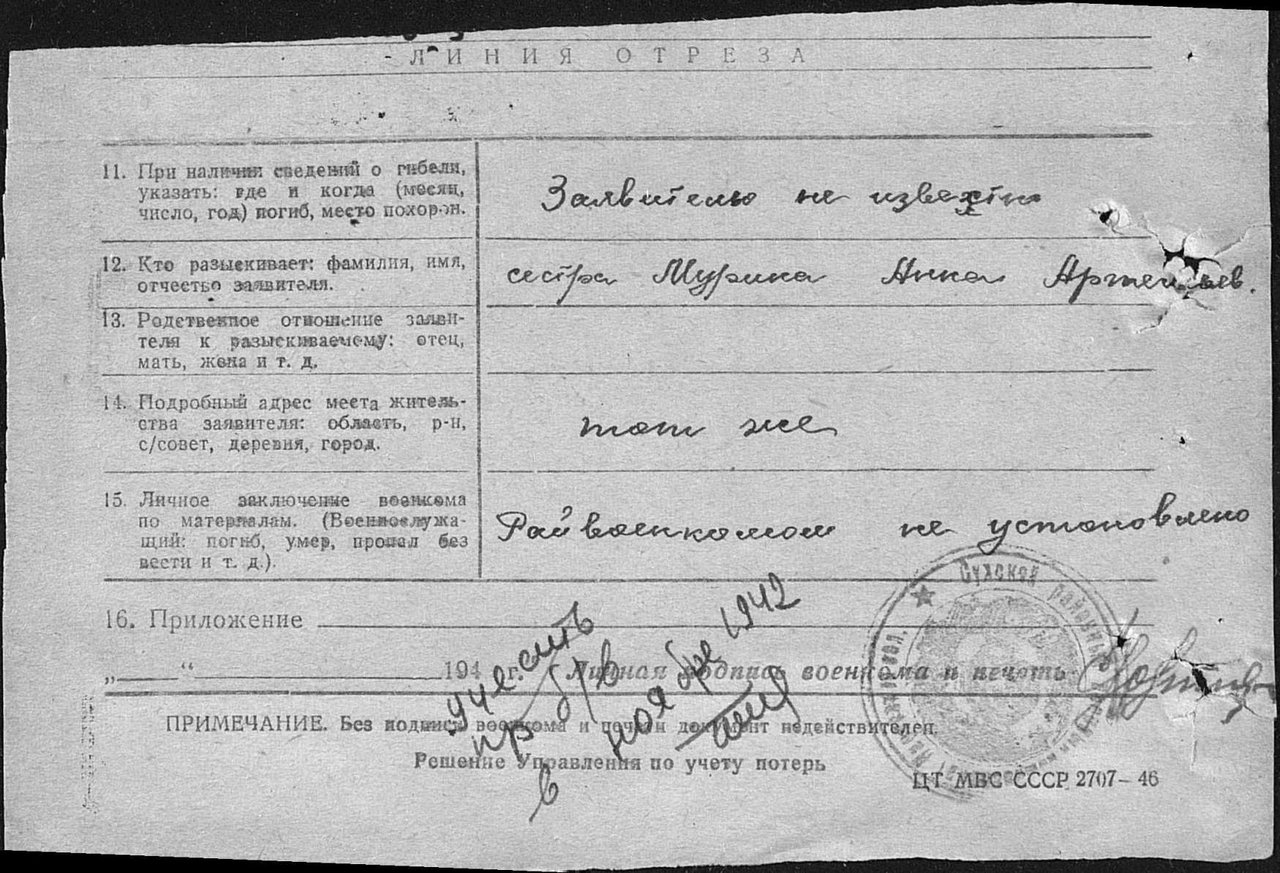 ЛИНИЯ ОТРЕЗА
11. При наличии сведений о гибели,
указать: где и когда (месяц,
число, год) погиб, место похорон.
Заявителю не известно
12. Кто разыскивает: фамилия, имя,
отчество заявителя.
сестра Мурина Анна
13. Родственное отношение заяви-
теля к разыскиваемому: отец,
мать, жена и т. д.
14. Подробный адрес места житель-
ства заявителя: область, р-н,
с/совет, деревня, город.
тот же
15. Личное заключение военкома
по материалам. (Военнослужа-
щий: погиб, умер, пропал без
вести и т. д.).
Райвоенкомом не установлено
16. Приложение
„ “ 194 г. Личная подпись военкома и печать
учесть
пр б/в
в ноябре 1942
ПРИМЕЧАНИЕ. Без подписи военкома и печати документ недействителен.
Решение Управления по учету потерь
ЦТ МВС СССР 2707—46